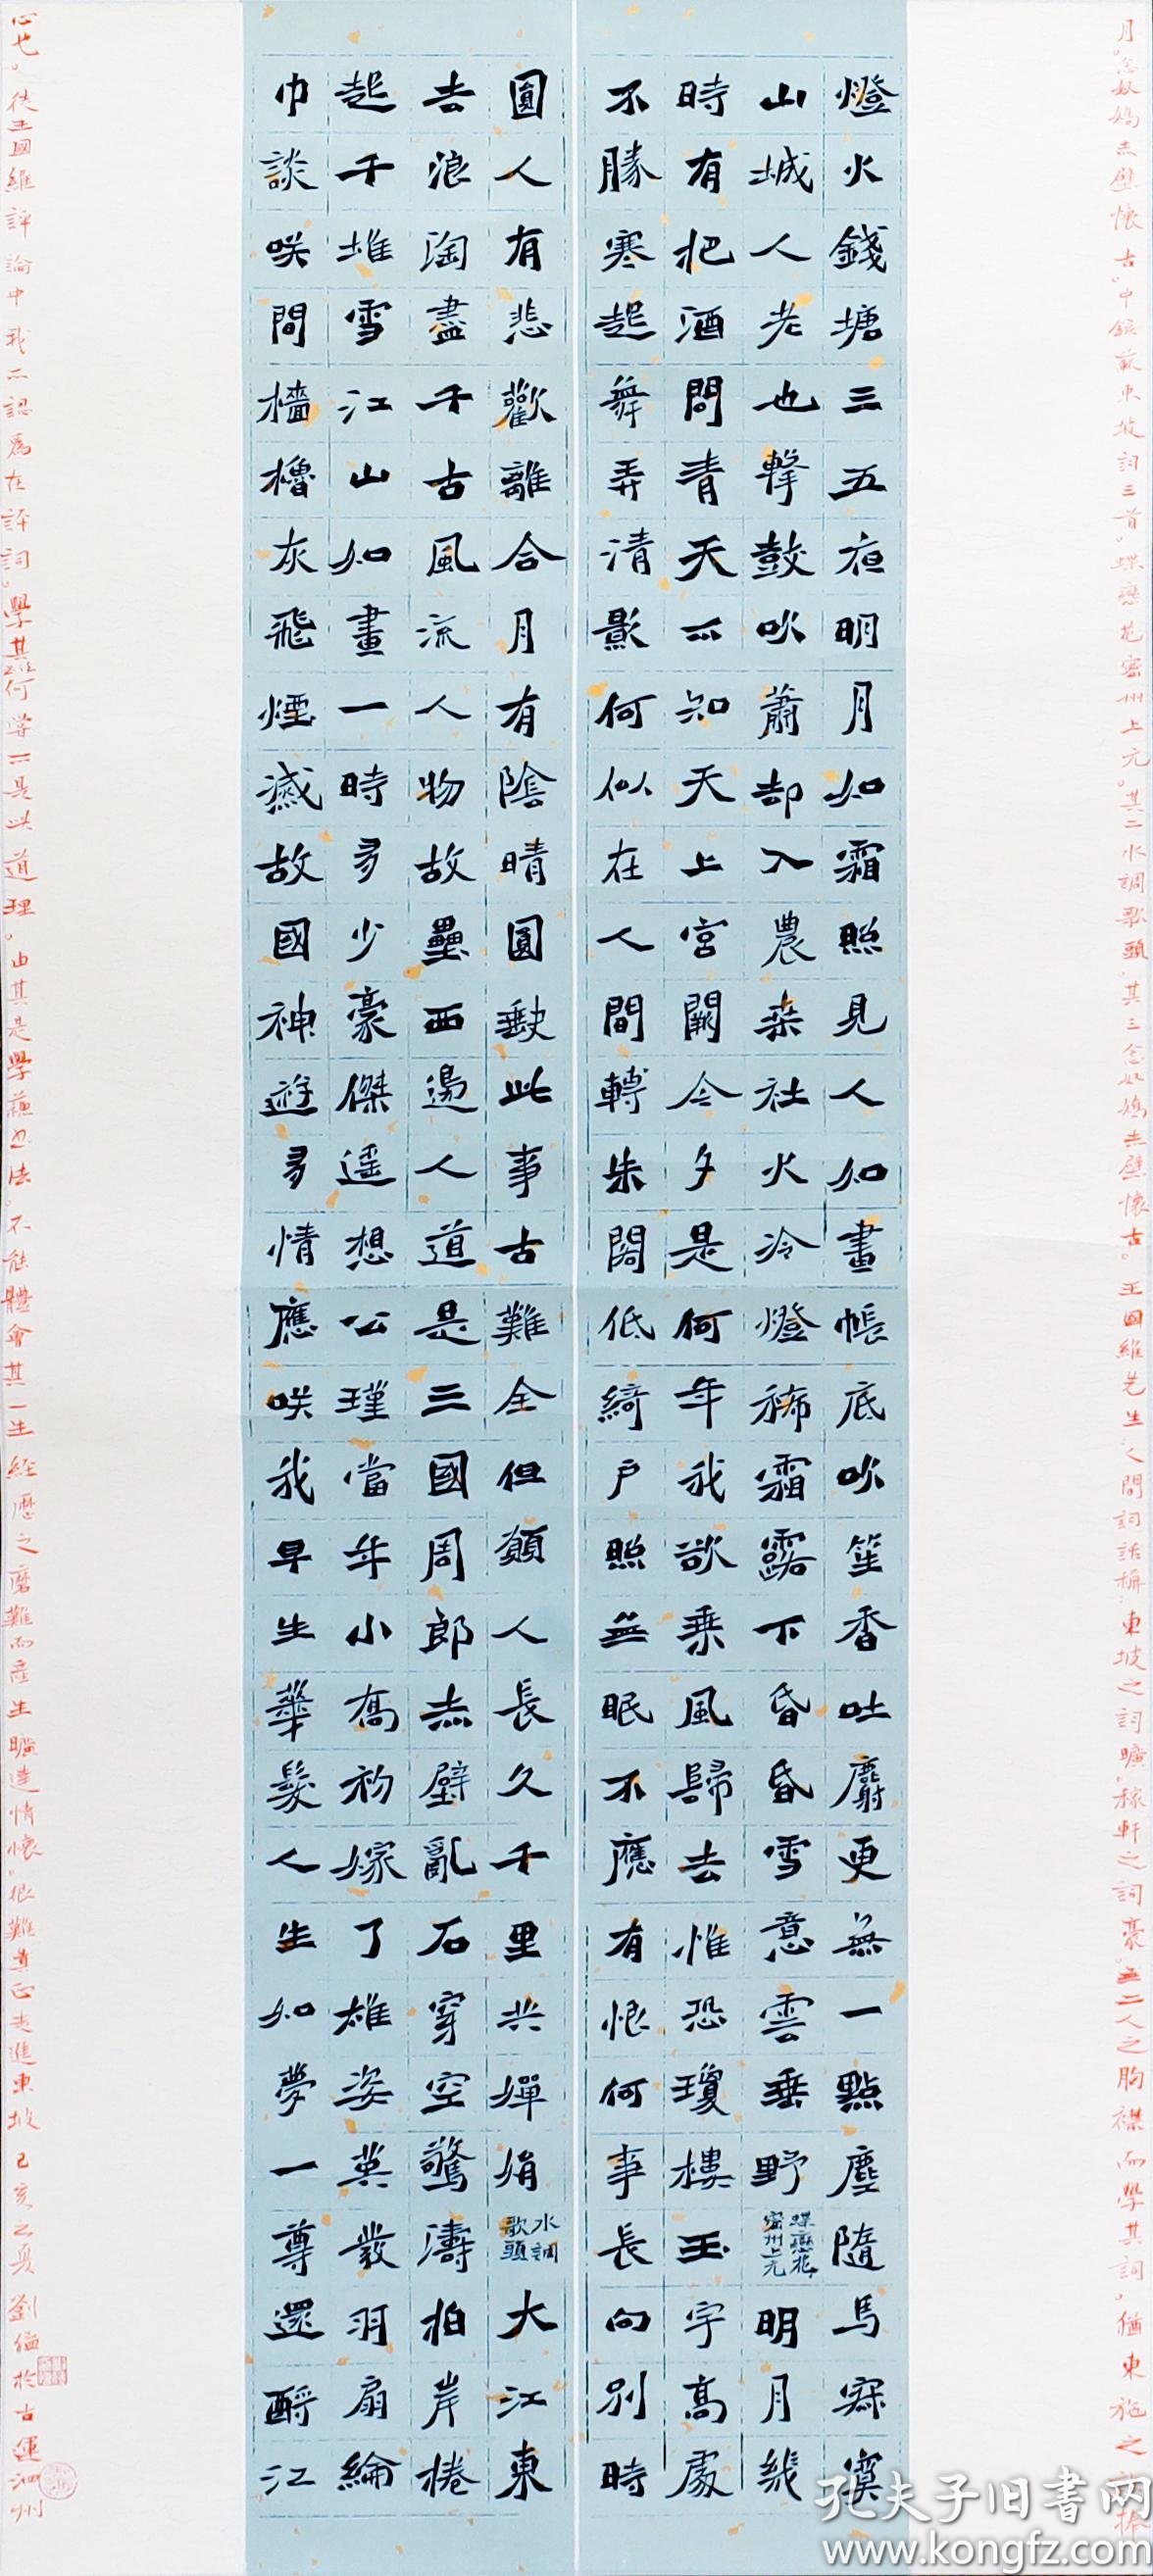 燈火錢塘三五夜明月如霜照見人如畫帳底吹笙香吐麝更無一點塵隨馬寂寞
山城人老也擊鼓吹簫却入農桑社火冷燈稀霜露下昏昏雪意雲垂野
蝶戀花
密州上元
明月幾
時有把酒問青天不知天上宮闕今夕是何年我欲乘風歸去惟恐瓊樓玉宇高處
不勝寒起舞弄清影何似在人間轉朱閣低綺戶照無眠不應有恨何事長向別時
圓人有悲歡離合月有陰晴圓缺此事古難全但願人長久千里共嬋娟
水調
歌頭
大江東
去浪淘盡千古風流人物故壘西邊人道是三國周郎赤壁亂石穿空驚濤拍岸捲
起千堆雪江山如畫一時多少豪傑遥想公瑾當年小喬初嫁了雄姿英發羽扇綸
巾談咲間檣櫓灰飛煙滅故國神遊多情應咲我早生華髮人生如夢一尊還酹江
月。念奴嬌赤壁懷古。中録蘇東坡詞三首。蝶戀花密州上元。其二水調歌頭。其三念奴嬌赤壁懷古。王國維先生人間詞話稱。東坡之詞曠。稼軒之詞豪。無二人之胸襟而學其詞。猶東施之捧
心也。從王國維評論中我不認爲在評詞。學其何嘗不是此道理。由其是學蘇書法。不能體會其一生經歷之磨難而産生曠達情懷。很難真正走進東坡 己亥之夏 劉 於古運泗州
孔夫子旧书网
www.kongfz.com